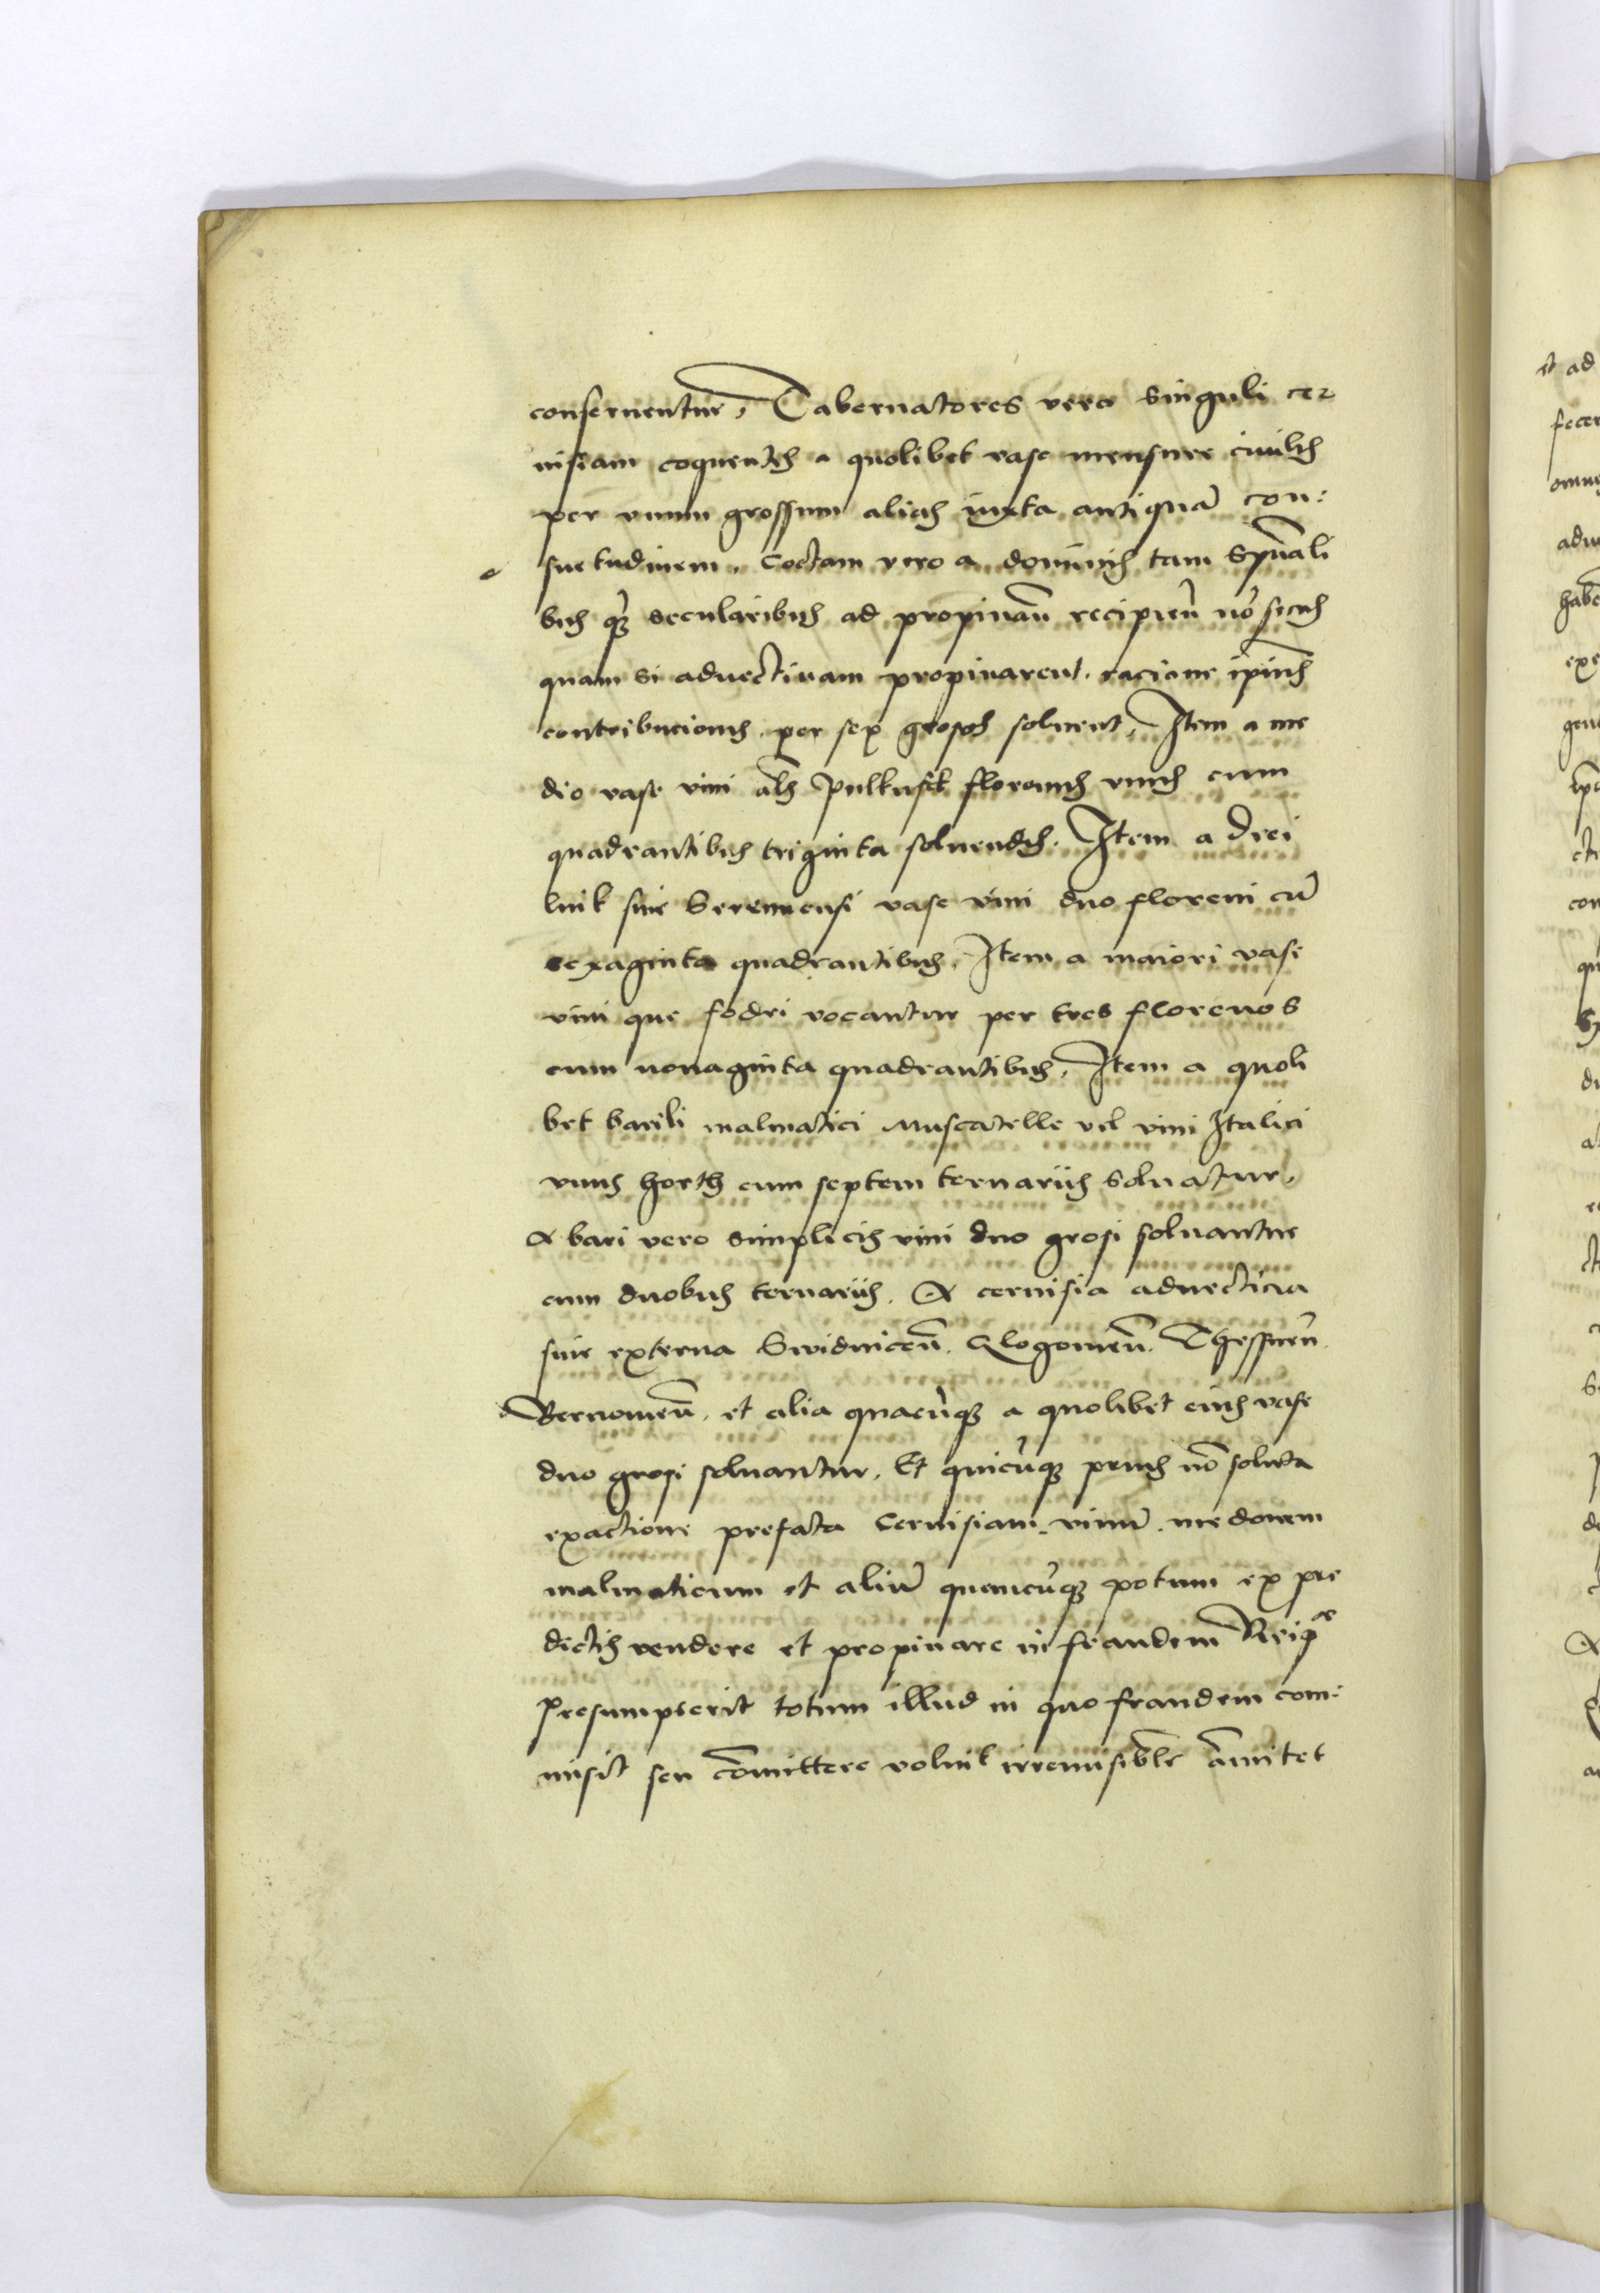 conseruentur, Tabernatores vero singuli cer
uisiam coquentes a quolibet vase mensure ciuilis
per vnum grossum alias iuxta antiquā con:
suetudinem. Coctam vero a dominis tam Spūali
bus q̄ȝ secularibus ad propinan̄ recipien̄ nō secus
quam si aduectiuam propinarent. racione ipius
contribucionis per sex grosos soluent, Item a me
dio vase vini al̄s pulkufek florenus vnus cum
quadrantibus triginta soluendus. Item a drei
link siue Seremensi vase vini duo floreni cū
sexaginta quadrantibus. Item a maiori vase
vini que fodri vocantur per tres florenos
cum nonaginta quadrantibus, Item a quoli
bet barili malmatici Muscatelle vel vini Italici
vnus horth cum septem ternariis soluatur,
A bari vero simplicis vini duo grosi soluantur
cum duobus ternariis. A ceruisia aduecticia
siue externa Swidnicen̄. Glogouien̄. Thessnen̄.
Bernouien̄. et alia quacūqȝ a quolibet eius vase
duo grosi soluantur. Et quicūqȝ prius nō soluta
exactione prefata Ceruisiam. vinū. medonem
malmaticum et aliū quemcūqȝ potum ex pre
dictis vendere et propinare in fraudem Reip͡e
Presumpserit totum illud in quo fraudem com:
misit seu cōmittere voluit irremisibl̄r āmitet
et ad